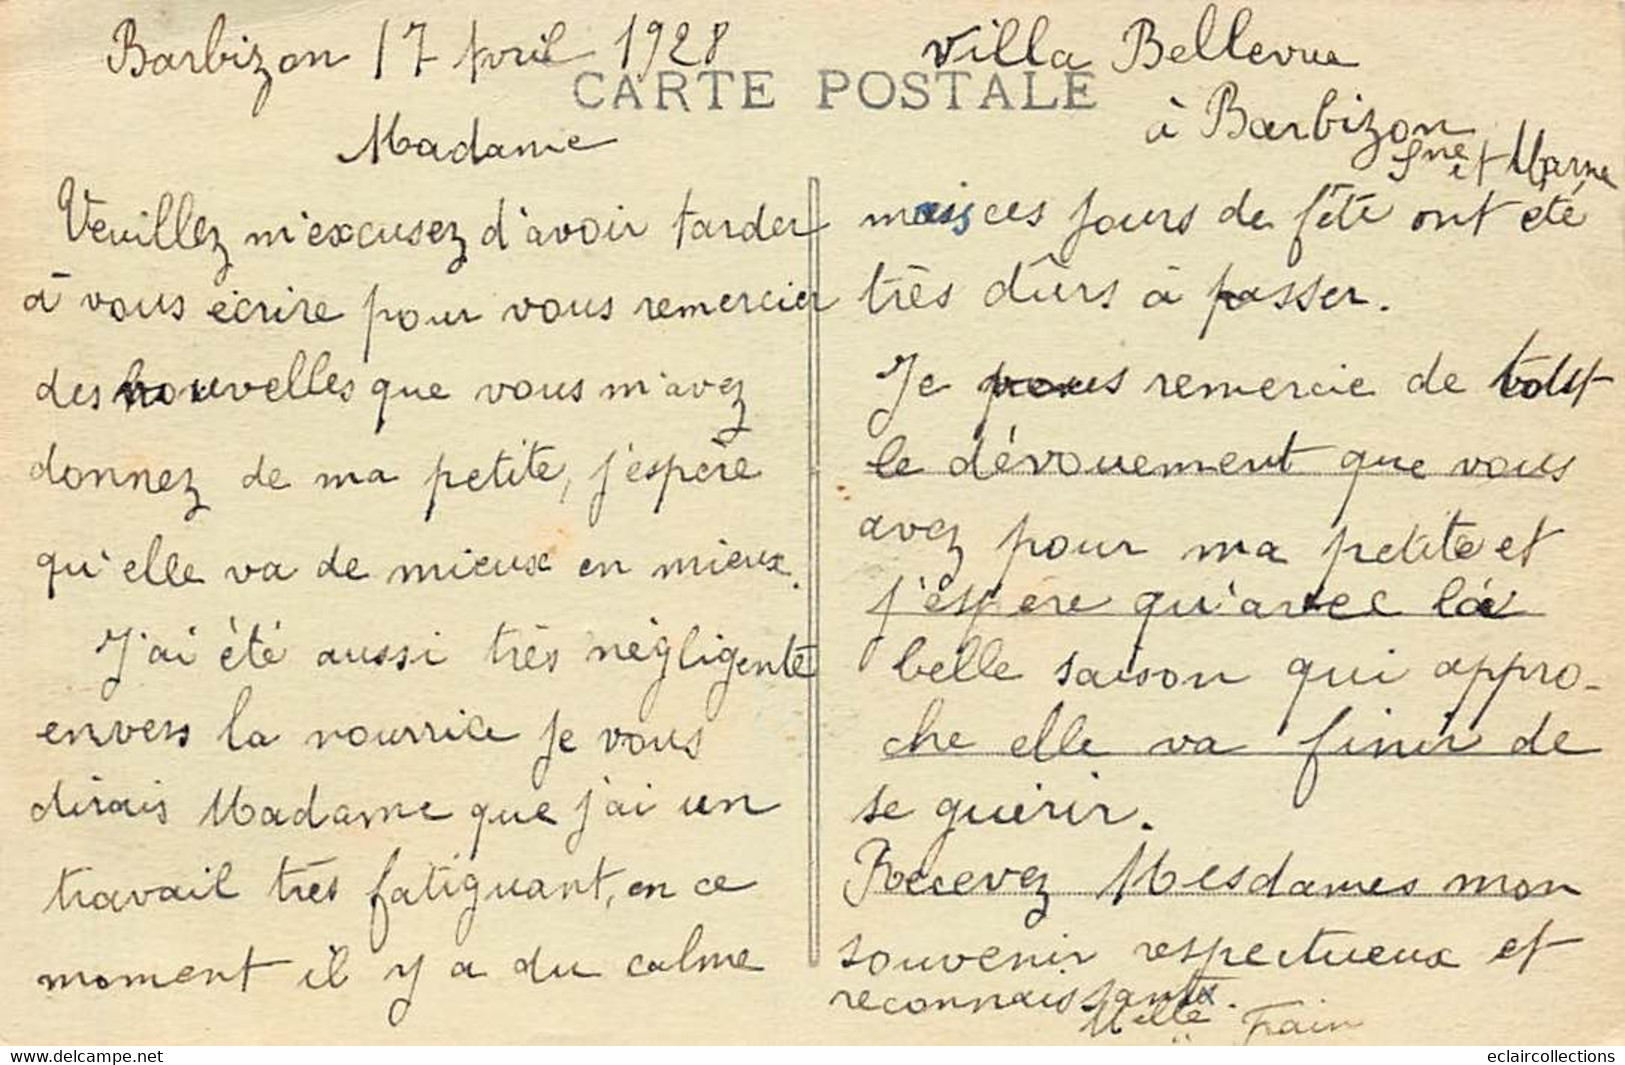 Barbizon 17 Avril 1928
CARTE POSTALE
Madame
Veuillez m'excusez d'avoir tarder
à vous écrire pour vous remercier
des nouvelles que vous m'avez
donnez de ma petite, j'espère
qu'elle va de mieux en mieux.
J'ai été aussi très négligente
envers la nourrice je vous
dirais Madame que j'ai un
travail très fatiguant, en ce
moment il y a du calme
Villa Bellevue
à Barbizon
Sne et Marne
mais ces jours de fête ont été
très dûrs à passer.
Je vous remercie de tout
le dévouement que vous
avez pour ma petite et
j'espère qu'avec la
belle saison qui appro-
che elle va finir de
se guérir.
Recevez Mesdames mon
souvenir respectueux et
reconnaissant.
Melle
eclaircollections.com
eclaircollections